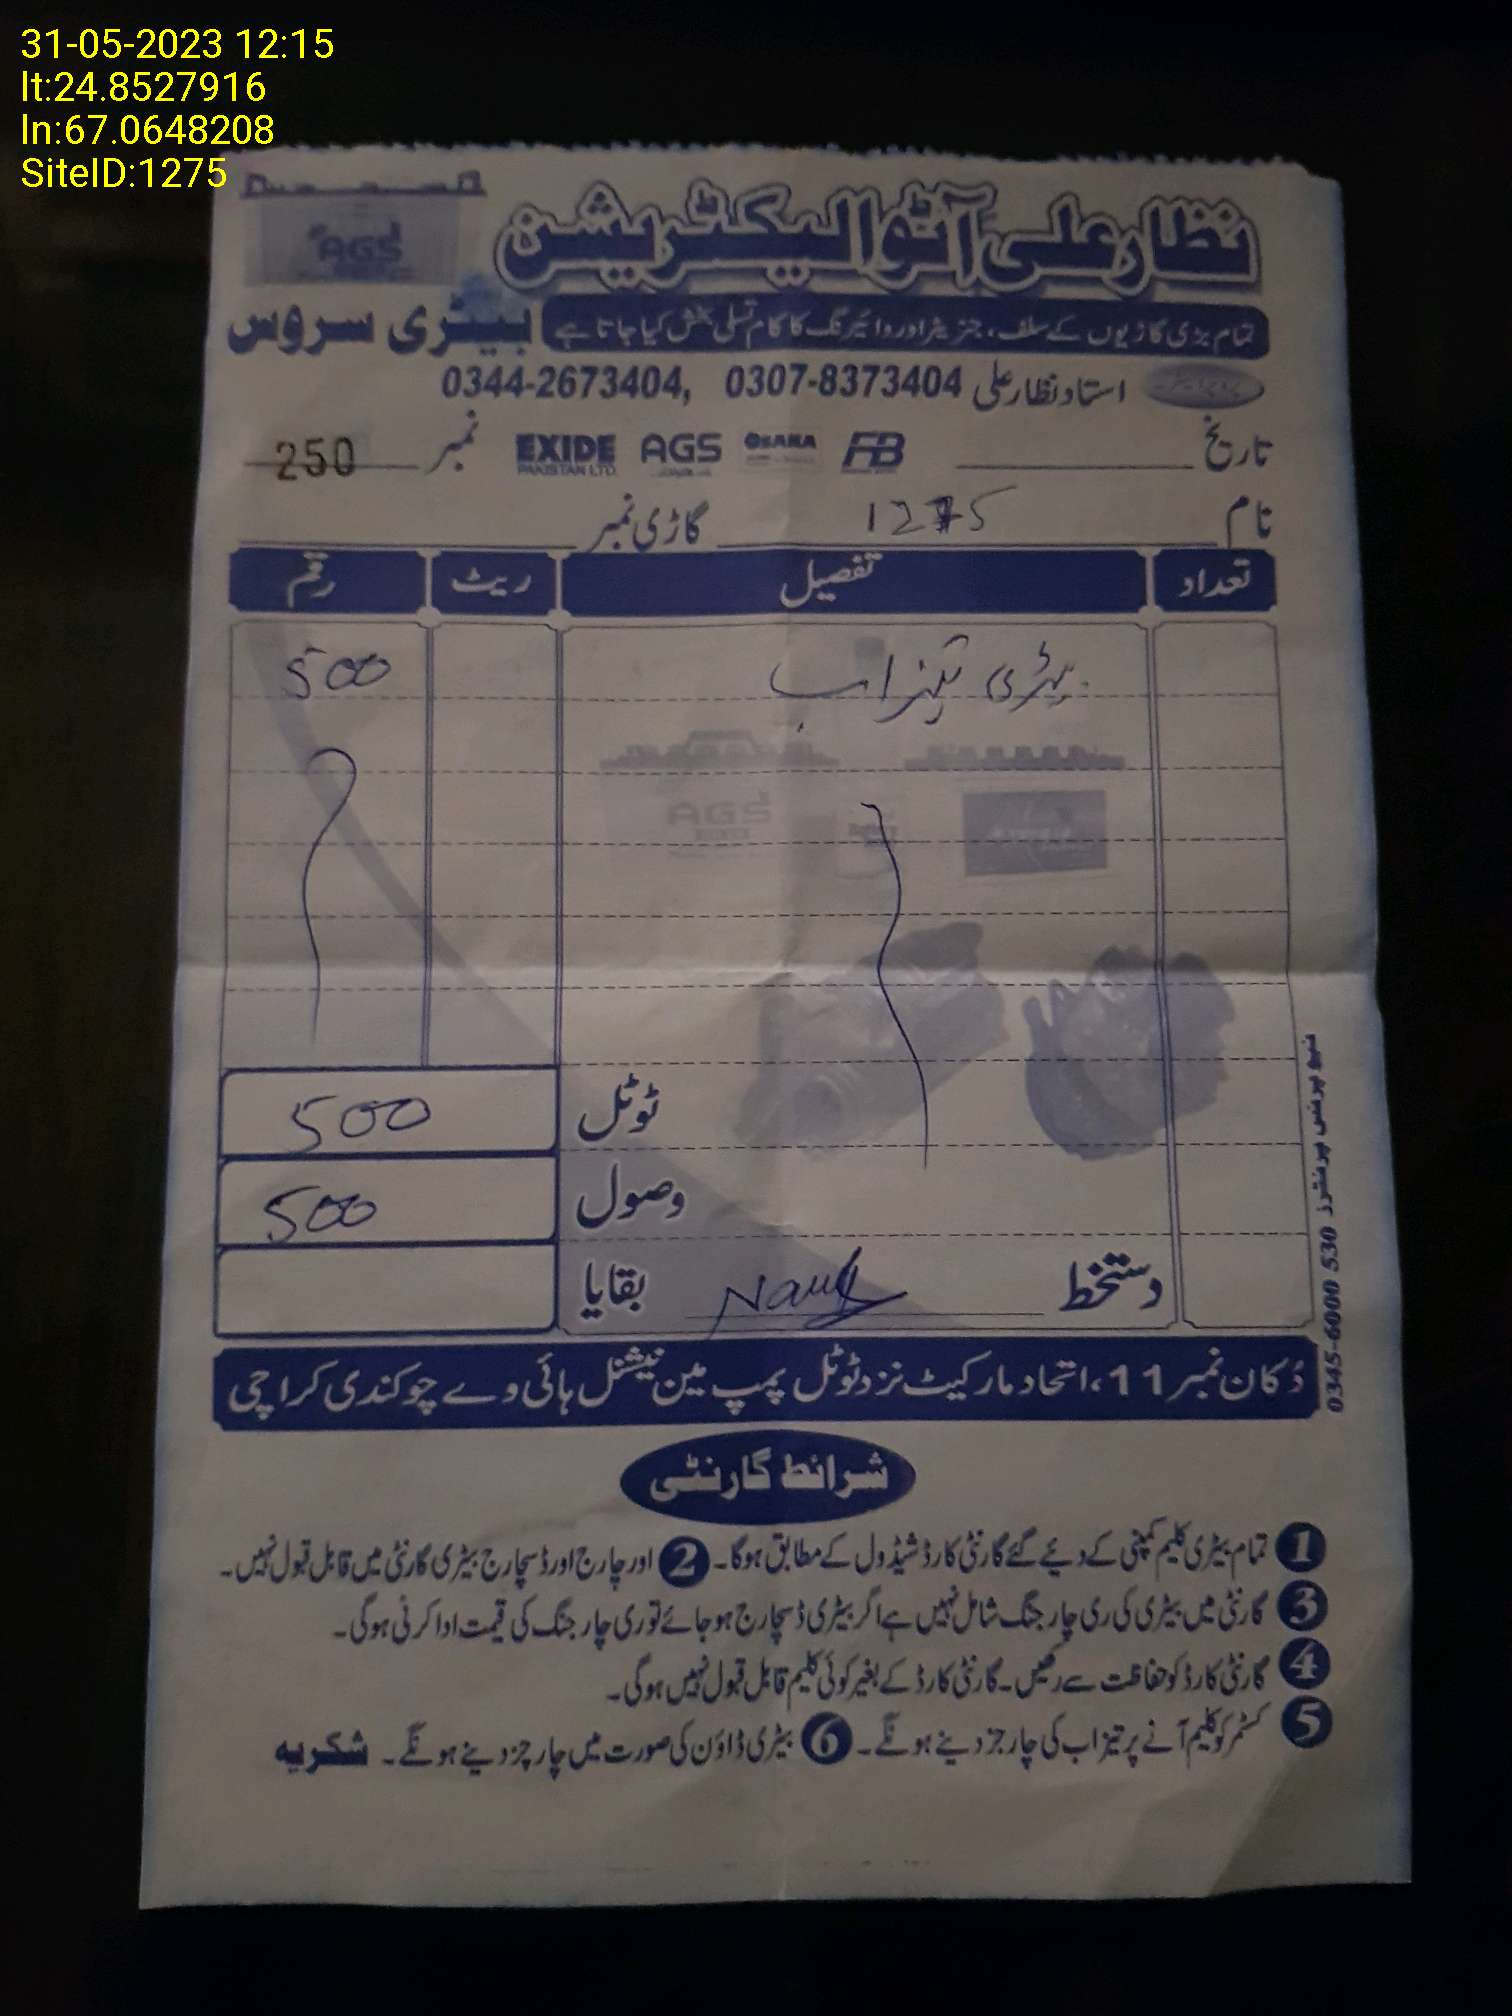 31-05-2023 12:15
lt:24.8527916
ln:67.0648208
SiteID:1275
AGS
نظار علی آٹو الیکٹریشن
تمام بڑی گاڑیوں کے سلف، جنریٹر اور وائیرنگ کا کام تسلی بخش کیا جاتا ہے بیٹری سروس
استاد نظار علی 0307-8373404 ,0344-2673404
تاریخ FB OSAKA AGS EXIDE PAKISTAN LTD. نمبر 250
نام 1275 گاڑی نمبر
تعداد تفصیل ریٹ رقم
بیٹری تیزاب 500
AGS
ٹوٹل 500
وصول 500
دستخط بقایا
دُکان نمبر 11، اتحاد مارکیٹ نزد ٹوٹل پمپ مین نیشنل ہائی وے چوکنڈی کراچی
نیو پرنس پرنٹرز 0345-6000 530
شرائط گارنٹی
1 تمام بیٹری کلیم کمپنی کے دیئے گئے گارنٹی کارڈ شیڈول کے مطابق ہوگا۔ 2 اور چارج اور ڈسچارج بیٹری گارنٹی میں قابل قبول نہیں۔
3 گارنٹی میں بیٹری کی ری چارجنگ شامل نہیں ہے اگر بیٹری ڈسچارج ہو جائے تو ری چارجنگ کی قیمت ادا کرنی ہوگی۔
4 گارنٹی کارڈ کو حفاظت سے رکھیں۔ گارنٹی کارڈ کے بغیر کوئی کلیم قابل قبول نہیں ہوگی۔
5 کسٹمر کو کلیم آنے پر تیزاب کی چارجز دینے ہونگے۔ 6 بیٹری ڈاؤن کی صورت میں چارجز دینے ہونگے۔ شکریہ